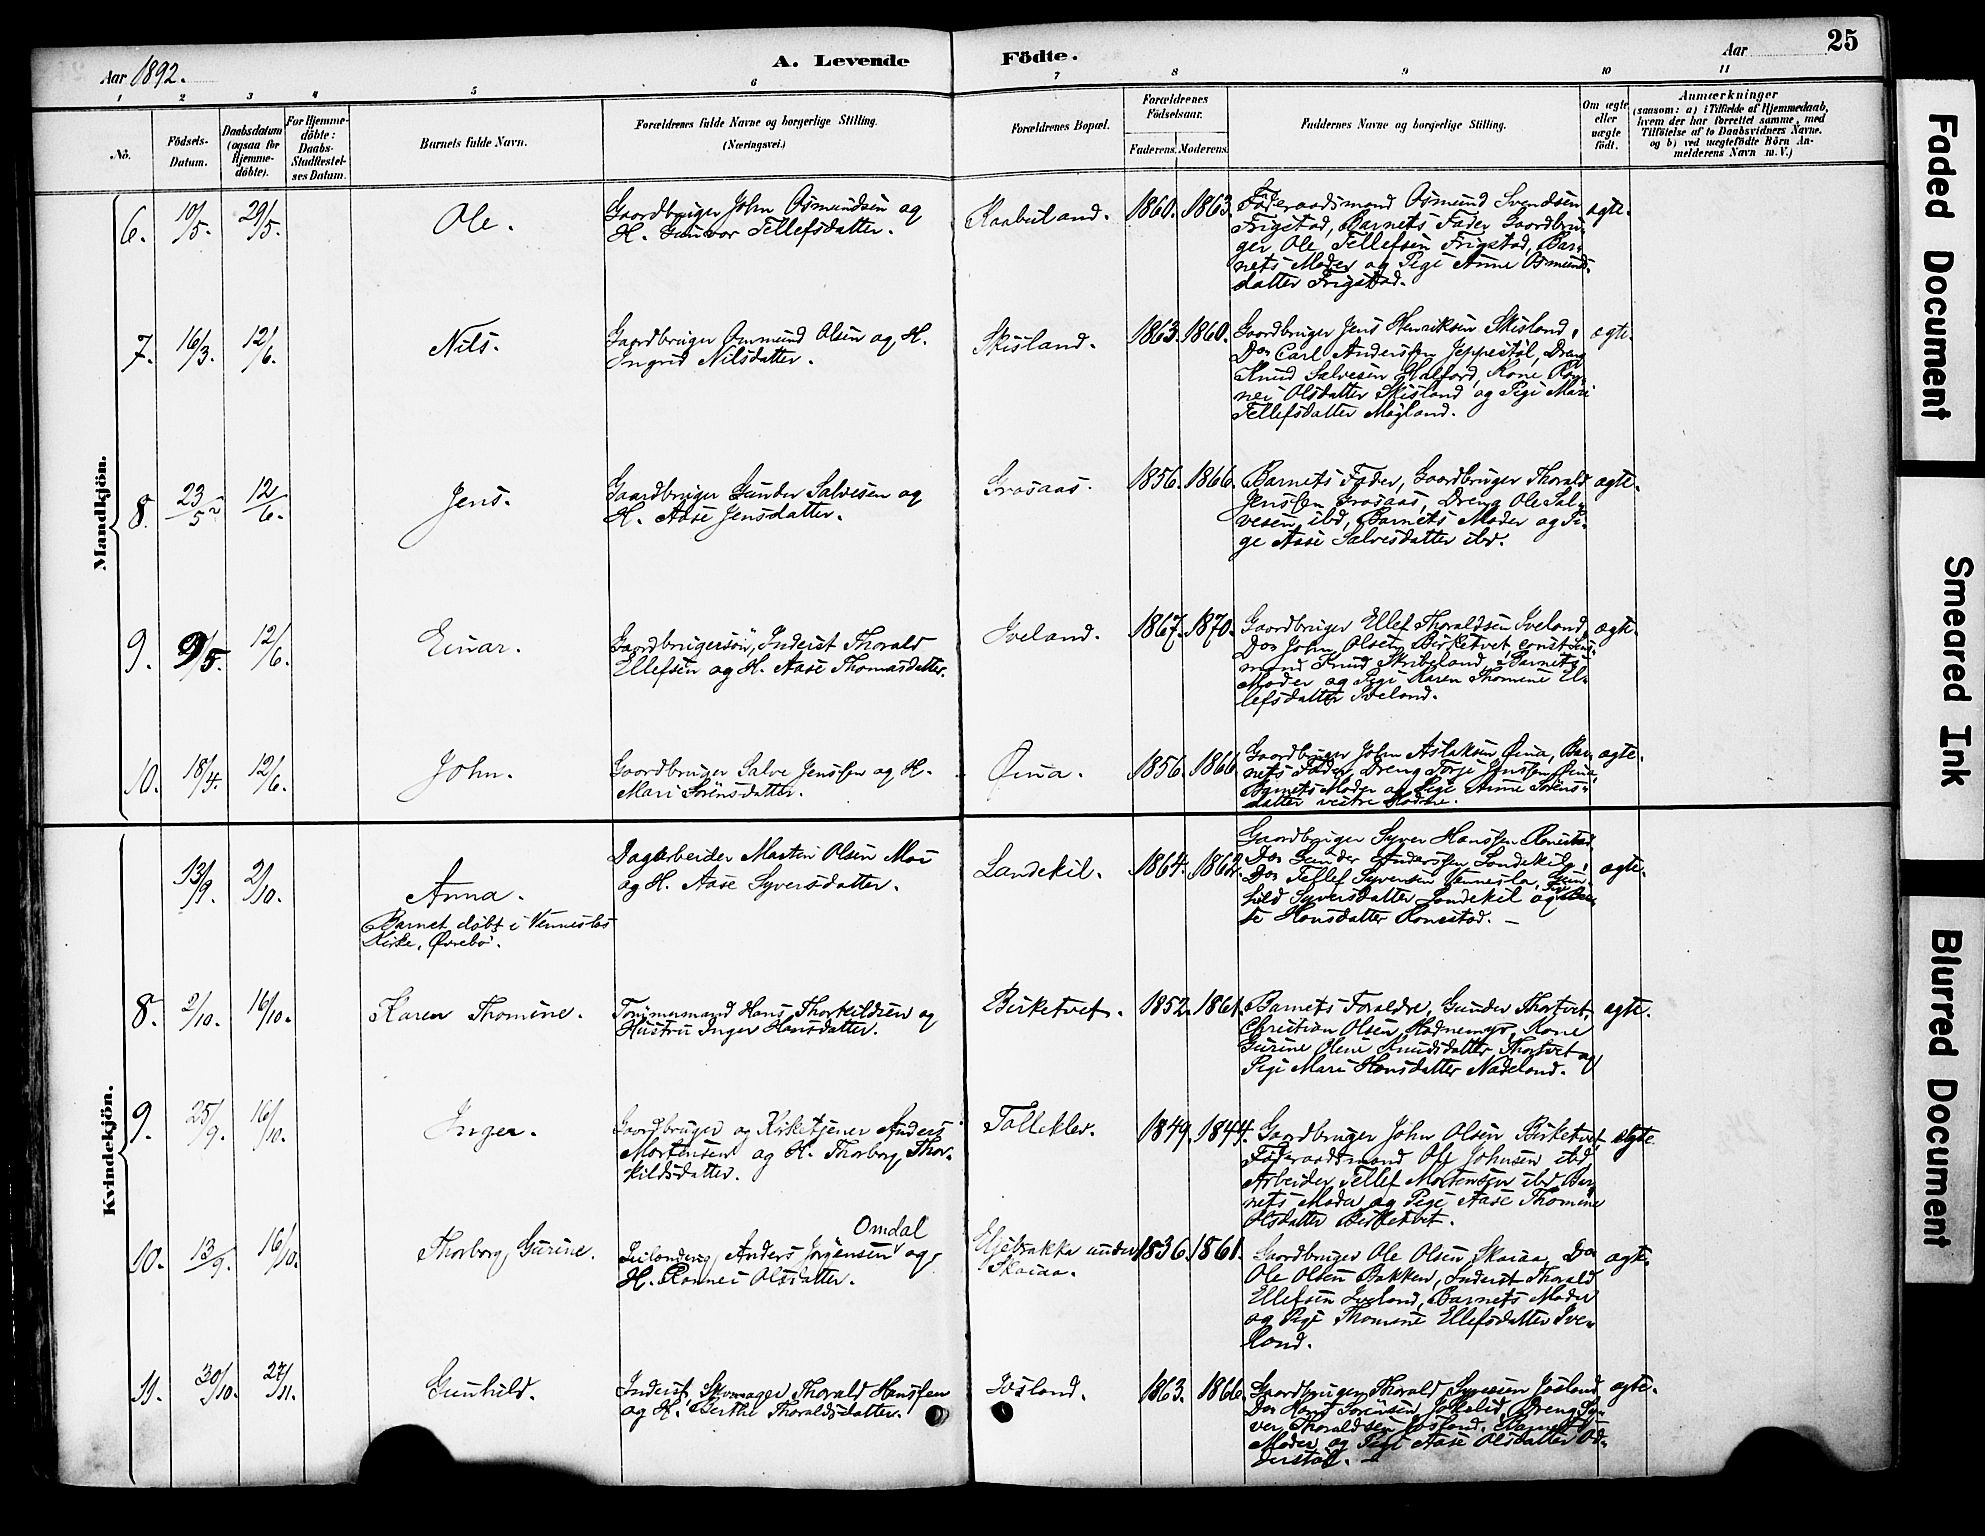 Aar 1892.
A. Levende Födte.
Aar
25
1 2 3 4 5 6 7 8 9 10 11
No.
Födsels-
Datum.
Daabsdatum
(ogsaa för
Hjemme-
döbte).
For Hjemme-
döbte:
Daabs-
Stadfæstel-
ses Datum.
Barnets fulde Navn.
Forældrenes fulde Navne og borgerlige Stilling.
(Næringsvei.)
Forældrenes Bopæl.
Forældrenes
Födselsaar.
Faderens. Moderens.
Faddernes Navne og borgerlige Stilling.
Om ægte
eller
uægte
födt.
Anmærkninger
(saasom: a) i Tilfælde af Hjemmedaab,
hvem der har forrettet samme, med
Tilföielse af to Daabsvidners Navne.
og b) ved uægtefödte Börn An-
melderens Navn m. V.)
Mandkjön.
6. 10/5. 29/5. Ole.
Gaardbruger John Osmundsen og
H. Gunvor Tellefsdatter.
Kaabuland. 1860. 1863.
Föderaadsmand Osmund Svendsen
Frigstad, Barnets Fader Gaardbru-
ger Ole Tellefsen Frigstad, Bar-
nets Moder og Pige Anne Osmunds-
datter Frigstad.
ægte.
7. 16/3. 12/6. Nils.
Gaardbruger Ommund Olsen og H.
Ingrid Nilsdatter.
Skisland. 1863. 1860.
Gaardbruger Jens Henriksen Skisland,
Do Carl Andersen Jeppestøl, Dreng
Knud Salvesen Kalford, Kone Ron-
nei Olsdatter Skisland og Pige Mari
Tellefsdatter Møgland.
ægte.
8. 23/5 12/6. Jens.
Gaardbruger Gunder Salvesen og
H. Aase Jensdatter.
Grosaas. 1856. 1866.
Barnets Fader, Gaardbruger Thorald
Jenssen Grosaas, Dreng Ole Sal-
vesen ibd, Barnets Moder og Pi-
ge Aase Salvesdatter ibd.
ægte.
9. 9/5. 12/6. Einar.
Gaardbrugersön, Inderst Thorald
Ellefsen og H. Aase Thomasdatter.
Iveland. 1867. 1870.
Gaardbruger Ellef Thoraldsen Iveland,
Do John Olsen Birketvet,
mand Knud Skribeland, Barnets
Moder og Pige Karen Thomine El-
lefsdatter Iveland.
ægte.
10. 18/4. 12/6. John.
Gaardbruger Salve Jenssen og H.
Mari Sörensdatter.
Øina. 1856. 1866.
Gaardbruger John Aslaksen Øina, Bar-
nets Fader, Dreng Torje Jenssen Øina,
Barnets Moder og Pige Anne Sörens-
datter vestre
ægte.
Kvindekjön.
13/9. 2/10. Anna.
Barnet döbt i Vennesla
Kirke, Øvrebö.
Dagarbeider Martin Olsen Moi
og H. Aase Syversdatter.
Landekil. 1864. 1862.
Gaardbruger Syver Hanssen Ronestad
Do Gunder Anderssen Landekil,
Do Tellef Syversen Vennesla, Gun-
hild Syversdatter Landekil og
Hansdatter Ronestad. —
ægte.
8. 2/10. 16/10. Karen Thomine.
Tömmermand Hans Thorkildsen og
Hustru Inger Hansdatter.
Birketvet. 1852. 1861.
Barnets Forældre, Gunder Thortvet,
Christian Olsen Hodnemyr, Kone
Gurine Oline Knudsdatter Thortvet og
Pige Mari Hansdatter Nadeland.
ægte.
9. 25/9. 16/10. Inger.
Gaardbruger og Kirketjener Anders
Mortensen og H. Thorborg Thor-
kildsdatter.
Tolleklev. 1849. 1844.
Gaardbruger John Olsen Birketvet
Föderaadsmand Ole Johnsen ibd
Arbeider Tellef Mortensen ibd Bar-
nets Moder og Pige Aase Thomine
Olsdatter Birketvet.
ægte.
10. 13/9. 16/10. Thorborg Gurine.
Omdal
Anders Jörgensen og
H. Ronnei Olsdatter.
Elgebakka under
Skaiaa.
1836. 1861.
Gaardbruger Ole Olsen Skaiaa, Do
Ole Olsen Bakken, Inderst Thorald
Ellefsen Iveland, Barnets Moder
og Pige Thomine Ellefsdatter Ive-
land.
ægte.
11. 30/10. 27/11. Gunhild.
Inderst, Skomager Thorald Hanssen
og H. Berthe Thoraldsdatter.
Ivsland. 1863. 1866.
Gaardbruger Thorald Syvesen Iosland
Do Hans Sörensen Jokelid, Dreng Sy-
ver Thoraldsen Iosland, Barnets
Moder og Pige Aase Olsdatter Od-
derstøl. —
ægte.
Faded Document
Smeared Ink
Blurred Document